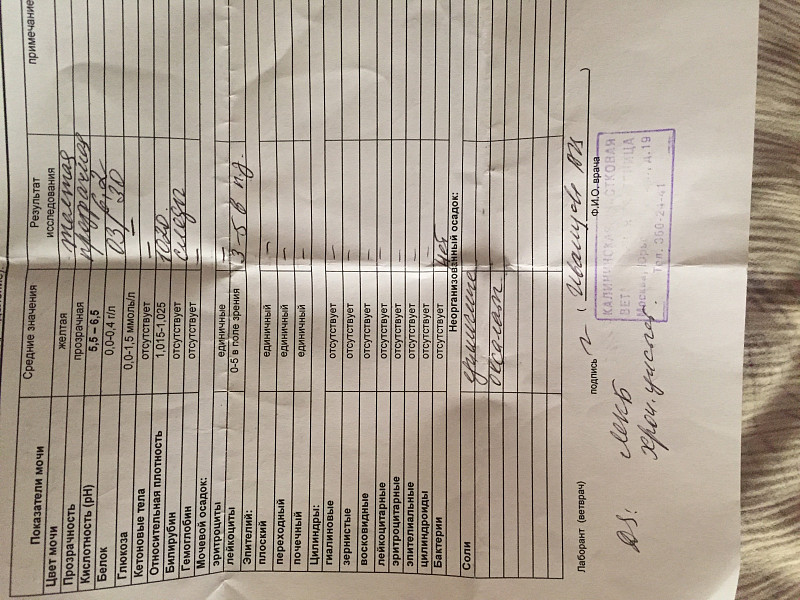 Показатели мочи Средние значения Результат исследования примечание
Цвет мочи желтая желтая
Прозрачность прозрачная прозрачная
Кислотность (pH) 5,5 – 6,5 6,2
Белок 0,0-0,4 г/л
Глюкоза 0,0-1,5 ммоль/л –
Кетоновые тела отсутствует –
Относительная плотность 1,015-1,025
Билирубин отсутствует следы
Гемоглобин отсутствует –
Мочевой осадок:
эритроциты единичные –
лейкоциты 0-5 в поле зрения 3-5 в п.з.
Эпителий:
плоский единичный –
переходный единичный –
почечный единичный –
Цилиндры:
гиалиновые отсутствует –
зернистые отсутствует –
восковидные отсутствует –
лейкоцитарные отсутствует –
эритроцитарные отсутствует –
эпителиальные отсутствует –
цилиндроиды отсутствует –
Бактерии отсутствует нет
Неорганизованный осадок:
Соли единичные
оксалаты
Лаборант (ветврач) подпись ( )
Ф.И.О. врача
КАЛИНИНСКАЯ
ВЕТ
д.19
Тел.
DS: МКБ
хрон. цистит.